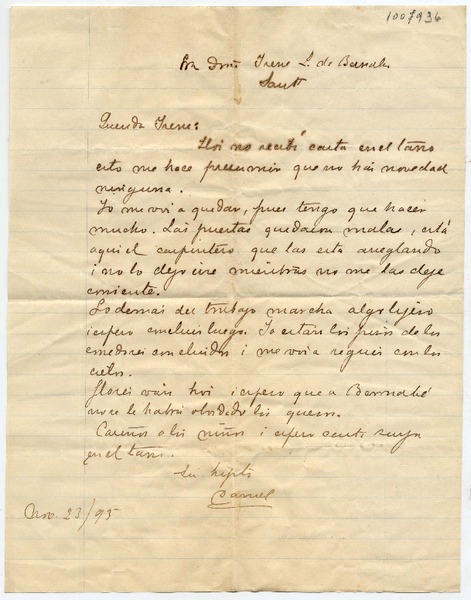 1007936
Sra Doña Irene L. de Bernales
Santo
Querida Irene:
Hoi no recibí carta en el tarro
esto me hace presumir que no hai novedad
ninguna.
Yo me voi a quedar, pues tengo que hacer
mucho. Las puertas quedaron malas, está
aqui el carpintero que las esta arreglando
i no lo dejo irse mientras no me las deje
corriente.
Lo demas del trabajo marcha algo lijero
i espero concluir luego. Ya estan los pisos de los
comedores concluidos i me voi a seguir con los
cielos.
Flores van hoi i espero que a Bernabé
no se le habrá olvidado los quesos.
Cariños a los niños i espero carta suya
en el tarro.
Su
Daniel
Nov. 23/95